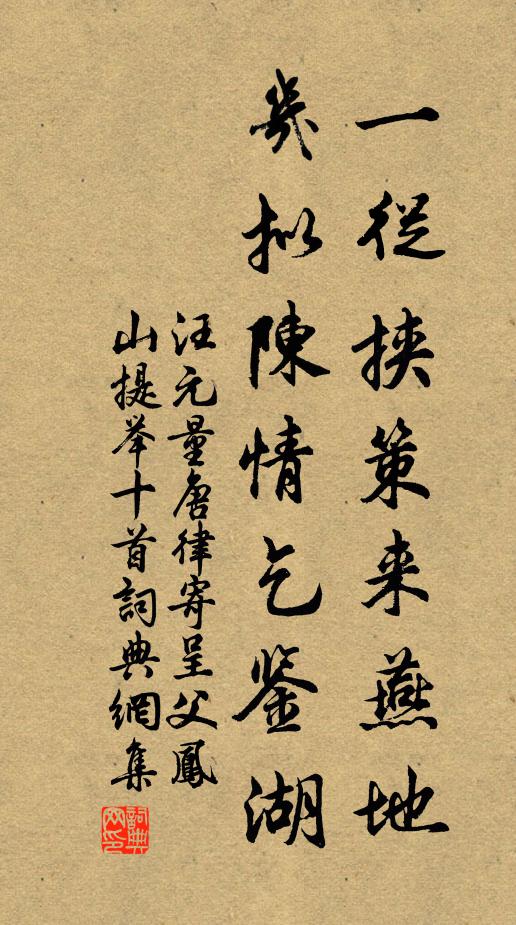 一從挾策来燕地
幾拟陳情乞鉴湖
汪元量唐律寄呈父鳳
山提举十首詞典網集
詞典网印